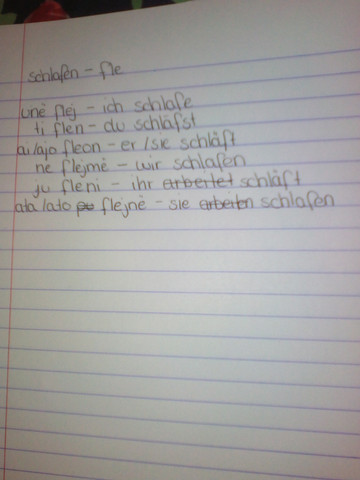 schlafen - fle
unë flej - ich schlafe
ti flen - du schläfst
ai/ajo fleon - er/sie schläft
ne flejmë - wir schlafen
ju fleni - ihr arbeitet schläft
ata/ato flejnë - sie arbeiten schlafen